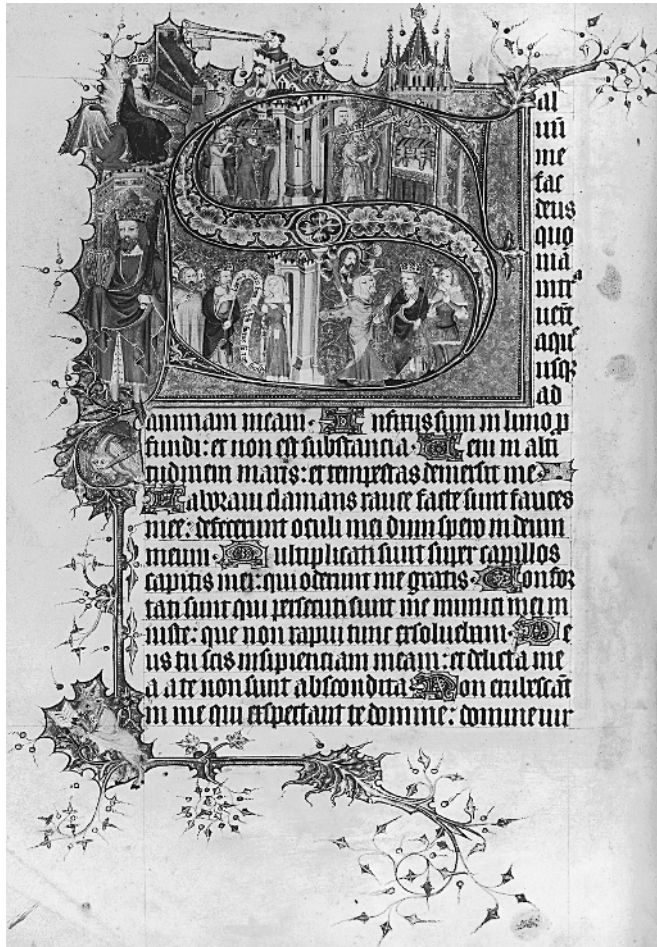 Sal
uū
me
fac
deus
quo
niā
intrᵃ
uerūt
aque
usqꝫ
ad
animam meam. Infixus sum in limo p
fundi: et non est substancia. Veni in alti
tudinem maris: et tempestas demersit me
Laboraui clamans rauce facte sunt fauces
mee: defecerunt oculi mei dum spero in deum
meum. Multiplicati sunt super capillos
capitis mei: qui oderunt me gratis. Confor
tati sunt qui persecuti sunt me inimici mei in
iuste: que non rapui tunc exsoluebam. De
us tu scis insipienciam meam: et delicta me
a a te non sunt abscondita. Non erubescāt
in me qui exspectant te domine: domine uir